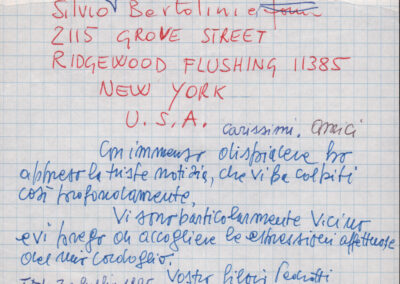 Silvio Bertolini e
2115 GROVE STREET
RIDGEWOOD FLUSHING 11385
NEW YORK
U. S. A.
carissimi, amici
Con immenso dispiacere ho
appreso la triste notizia, che vi ha colpiti
così profondamente,
Vi sono particolarmente vicino
e vi prego di accogliere le espressioni affettuose
del mio cordoglio.
Vostro Silvio